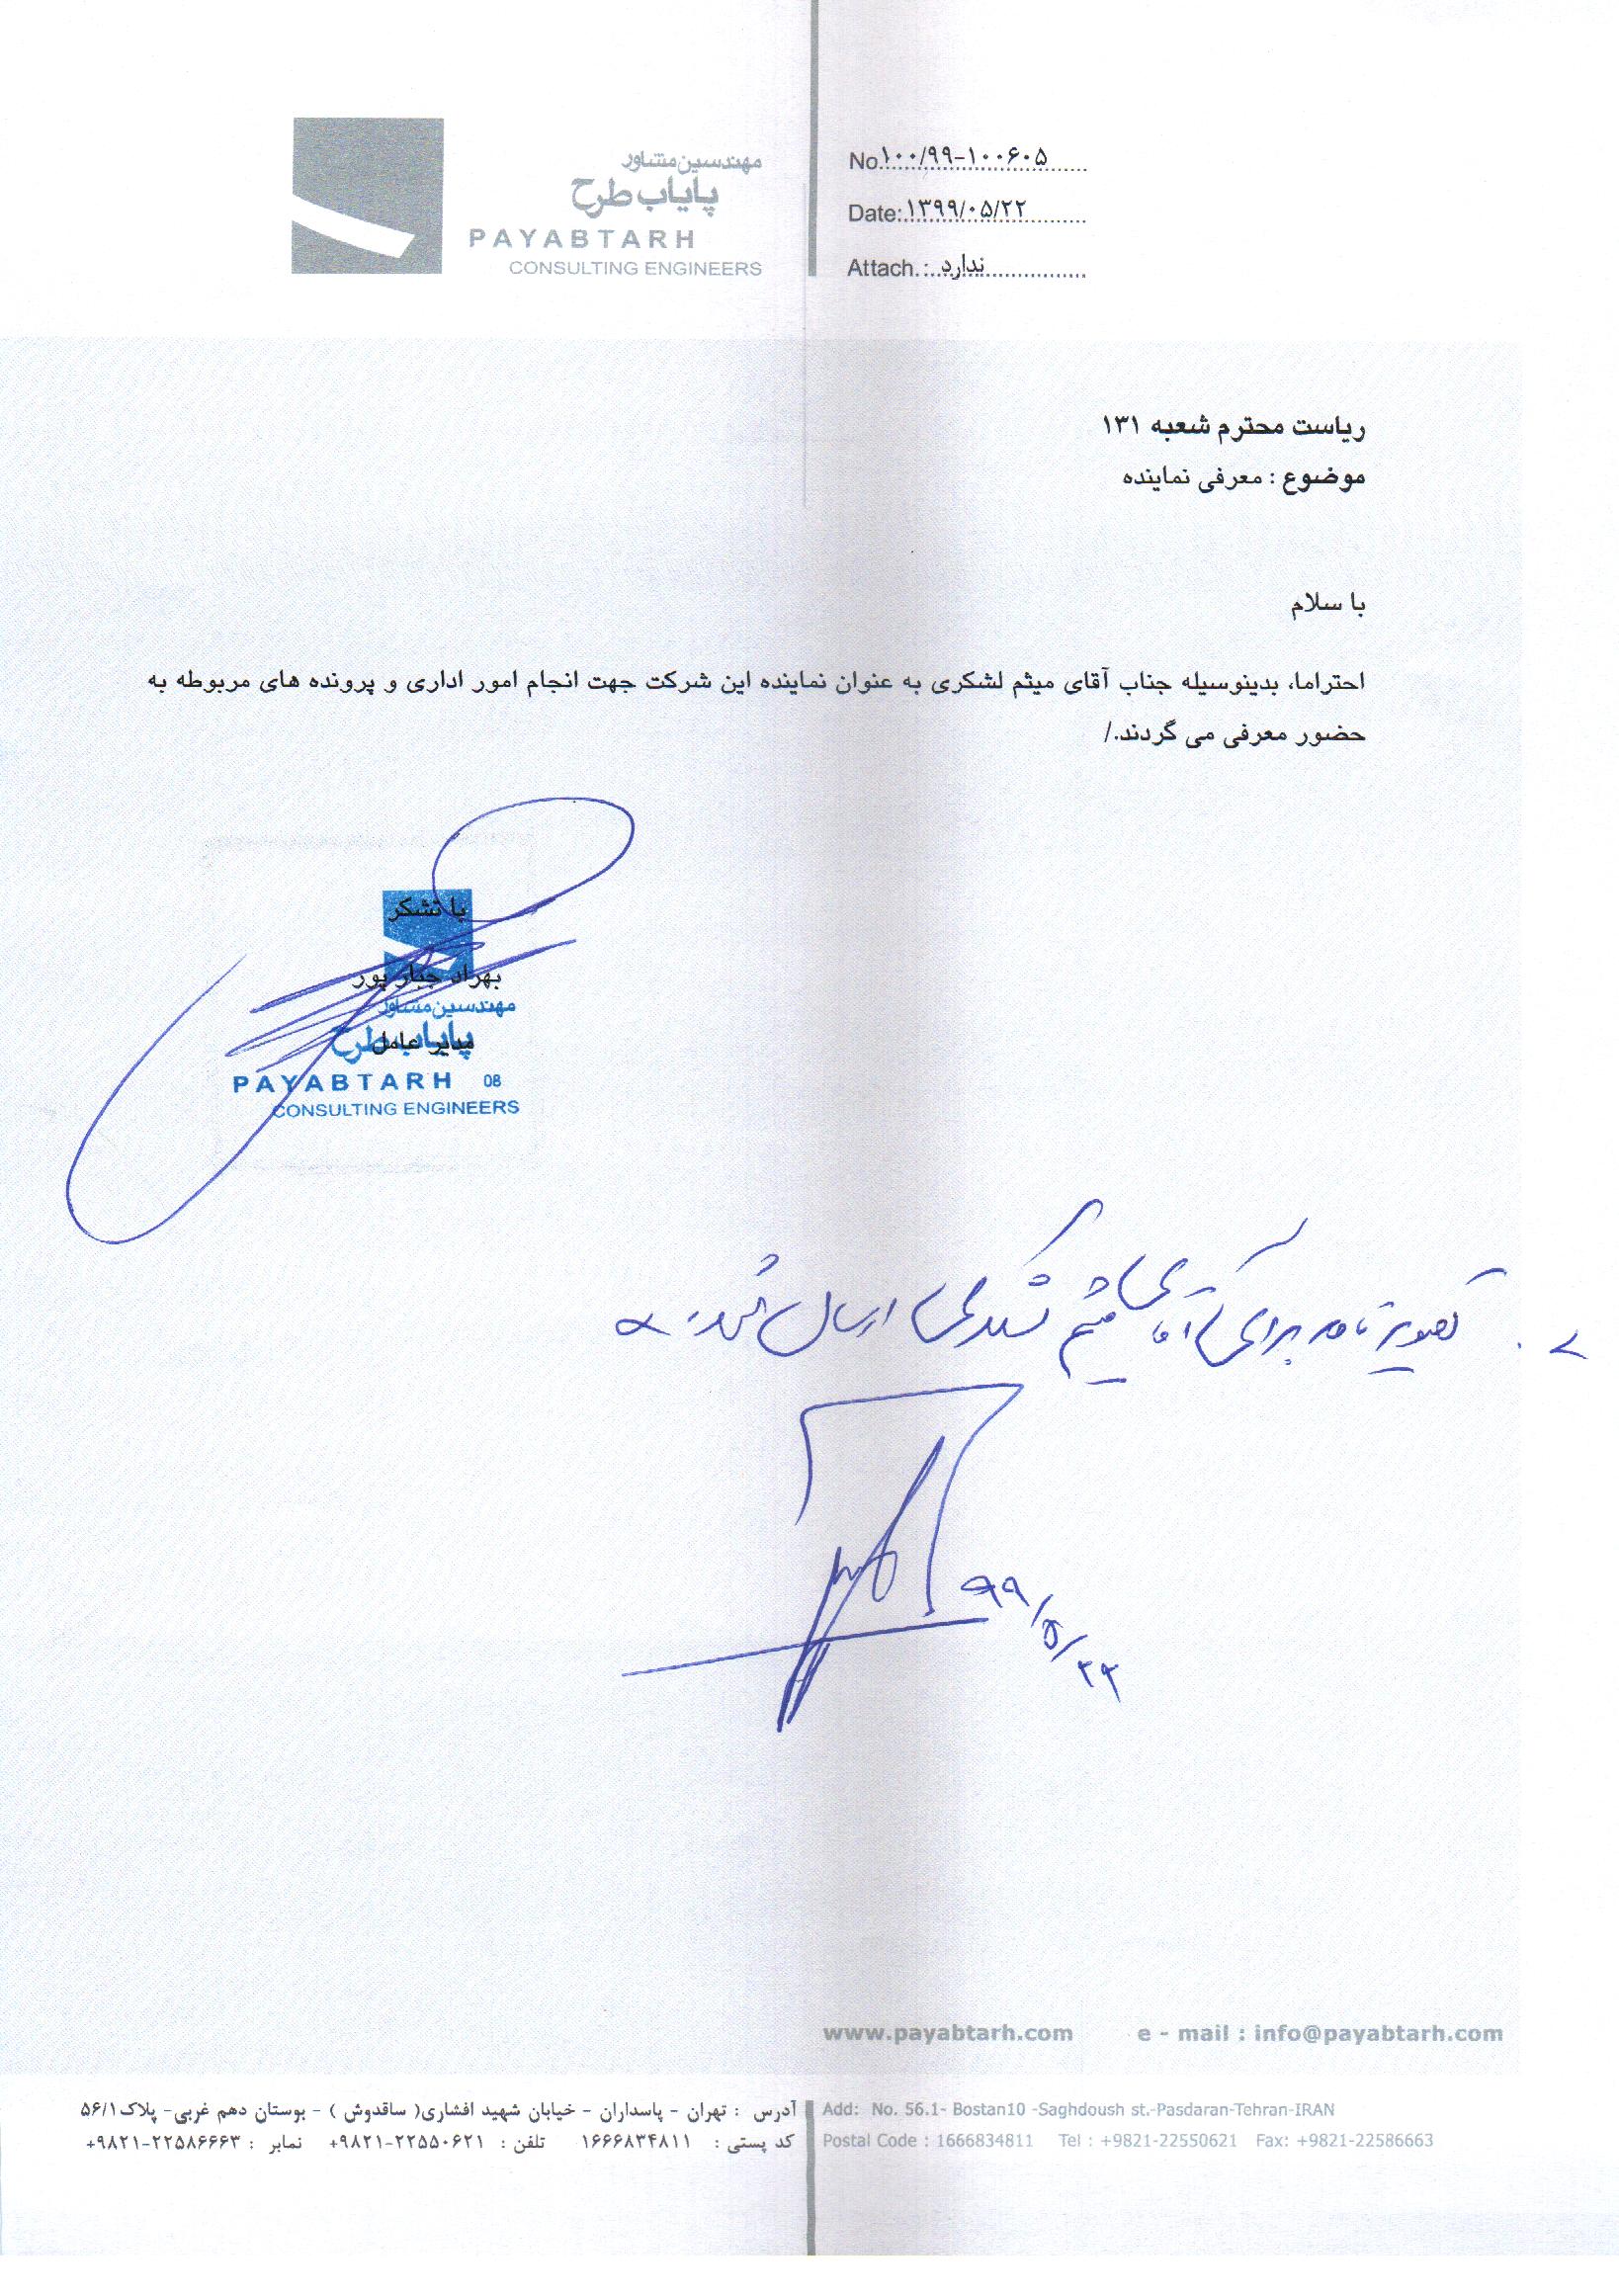 مهندسین مشاور
پایاب طرح
PAYABTARH
CONSULTING ENGINEERS
No.:۱۰۰/۹۹-۱۰۰۶۰۵
Date:۱۳۹۹/۰۵/۲۲
Attach.:ندارد
ریاست محترم شعبه ۱۳۱
موضوع : معرفی نماینده
با سلام
احتراما، بدینوسیله جناب آقای میثم لشکری به عنوان نماینده این شرکت جهت انجام امور اداری و پرونده های مربوطه به
حضور معرفی می گردند./
با تشکر
بهراد جبار پور
مهندسین مشاور
پایاب طرح
مدیر عامل
PAYABTARH 08
CONSULTING ENGINEERS
تصویر نامه برای آقای میثم لشکری ارسال شود
۹۹/۵/۲۲
www.payabtarh.com e - mail : info@payabtarh.com
آدرس : تهران - پاسداران - خیابان شهید افشاری( ساقدوش ) - بوستان دهم غربی- پلاک ۵۶/۱
کد پستی : ۱۶۶۶۸۳۴۸۱۱ تلفن : ۲۲۵۵۰۶۲۱-۹۸۲۱+ نمابر : ۲۲۵۸۶۶۶۳-۹۸۲۱+
Add: No. 56.1- Bostan10 -Saghdoush st.-Pasdaran-Tehran-IRAN
Postal Code : 1666834811 Tel : +9821-22550621 Fax: +9821-22586663